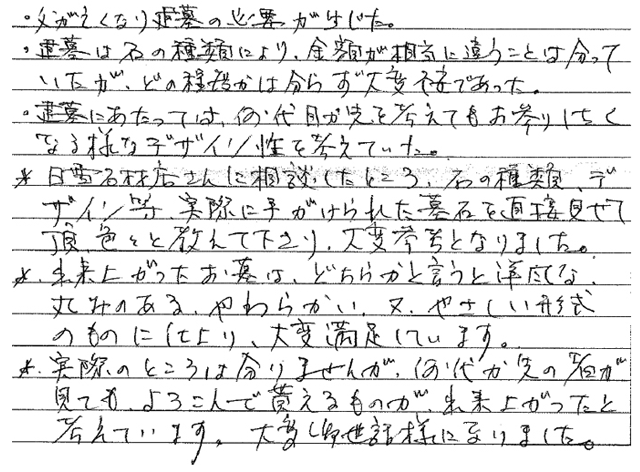 ・父が亡くなり建墓の必要が生じた。
・建墓は石の種類により、金額が相当に違うことは分って
いたが、どの程度かは分らず大変不安であった。
・建墓にあたっては、何代目か先を考えてもお参りしたく
なる様なデザイン性を考えていた。
* 日雪石材店さんに相談したところ、石の種類、デ
ザイン等、実際に手がけられた墓石を直接見せて
頂、色々と教えて下さり、大変参考となりました。
* 出来上がったお墓は、どちらかと言うと洋風な、
丸みのある、やわらかい、又、やさしい形式
のものに仕上り、大変満足しています。
* 実際のところは分りませんが、何代か先の者が
見ても、よろこんで貰えるものが、出来上がったと
考えています。大変御世話様になりました。